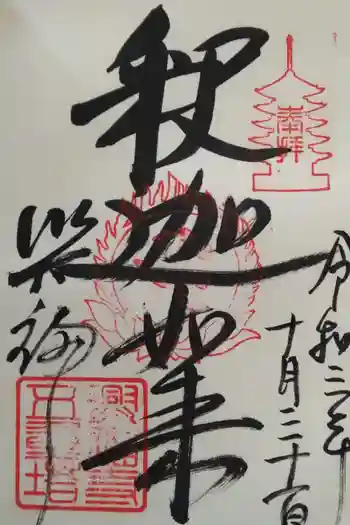 奉拝
令和二年
十月三十一日
釈迦如来
興福寺